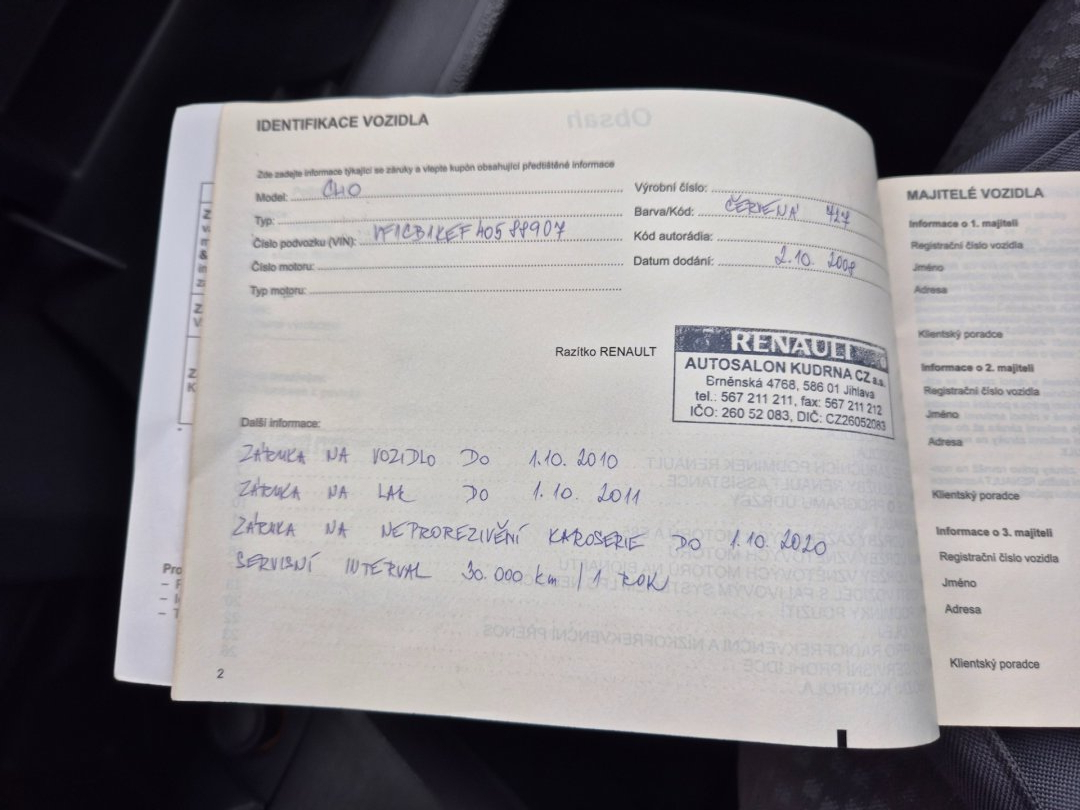 IDENTIFIKACE VOZIDLA
Zde zadejte informace týkající se záruky a vlepte kupón obsahující předtištěné informace
Model: CLIO
Typ:
Číslo podvozku (VIN): VF1CB1KEF40588907
Číslo motoru:
Typ motoru:
Výrobní číslo:
Barva/Kód: ČERVENÁ 727
Kód autorádia:
Datum dodání: 2.10. 2008
Razítko RENAULT
RENAULT
AUTOSALON KUDRNA CZ a.s.
Brněnská 4768, 586 01 Jihlava
tel.: 567 211 211, fax: 567 211 212
IČO: 260 52 083, DIČ: CZ26052083
Další informace:
ZÁRUKA NA VOZIDLO DO 1.10. 2010
ZÁRUKA NA LAK DO 1.10. 2011
ZÁRUKA NA NEPROREZIVĚNÍ KAROSERIE DO 1.10. 2020
SERVISNÍ INTERVAL 30.000 km / 1 ROK
2
MAJITELÉ VOZIDLA
Informace o 1. majiteli
Registrační číslo vozidla
Jméno
Adresa
Klientský poradce
Informace o 2. majiteli
Registrační číslo vozidla
Jméno
Adresa
Klientský poradce
Informace o 3. majiteli
Registrační číslo vozidla
Jméno
Adresa
Klientský poradce